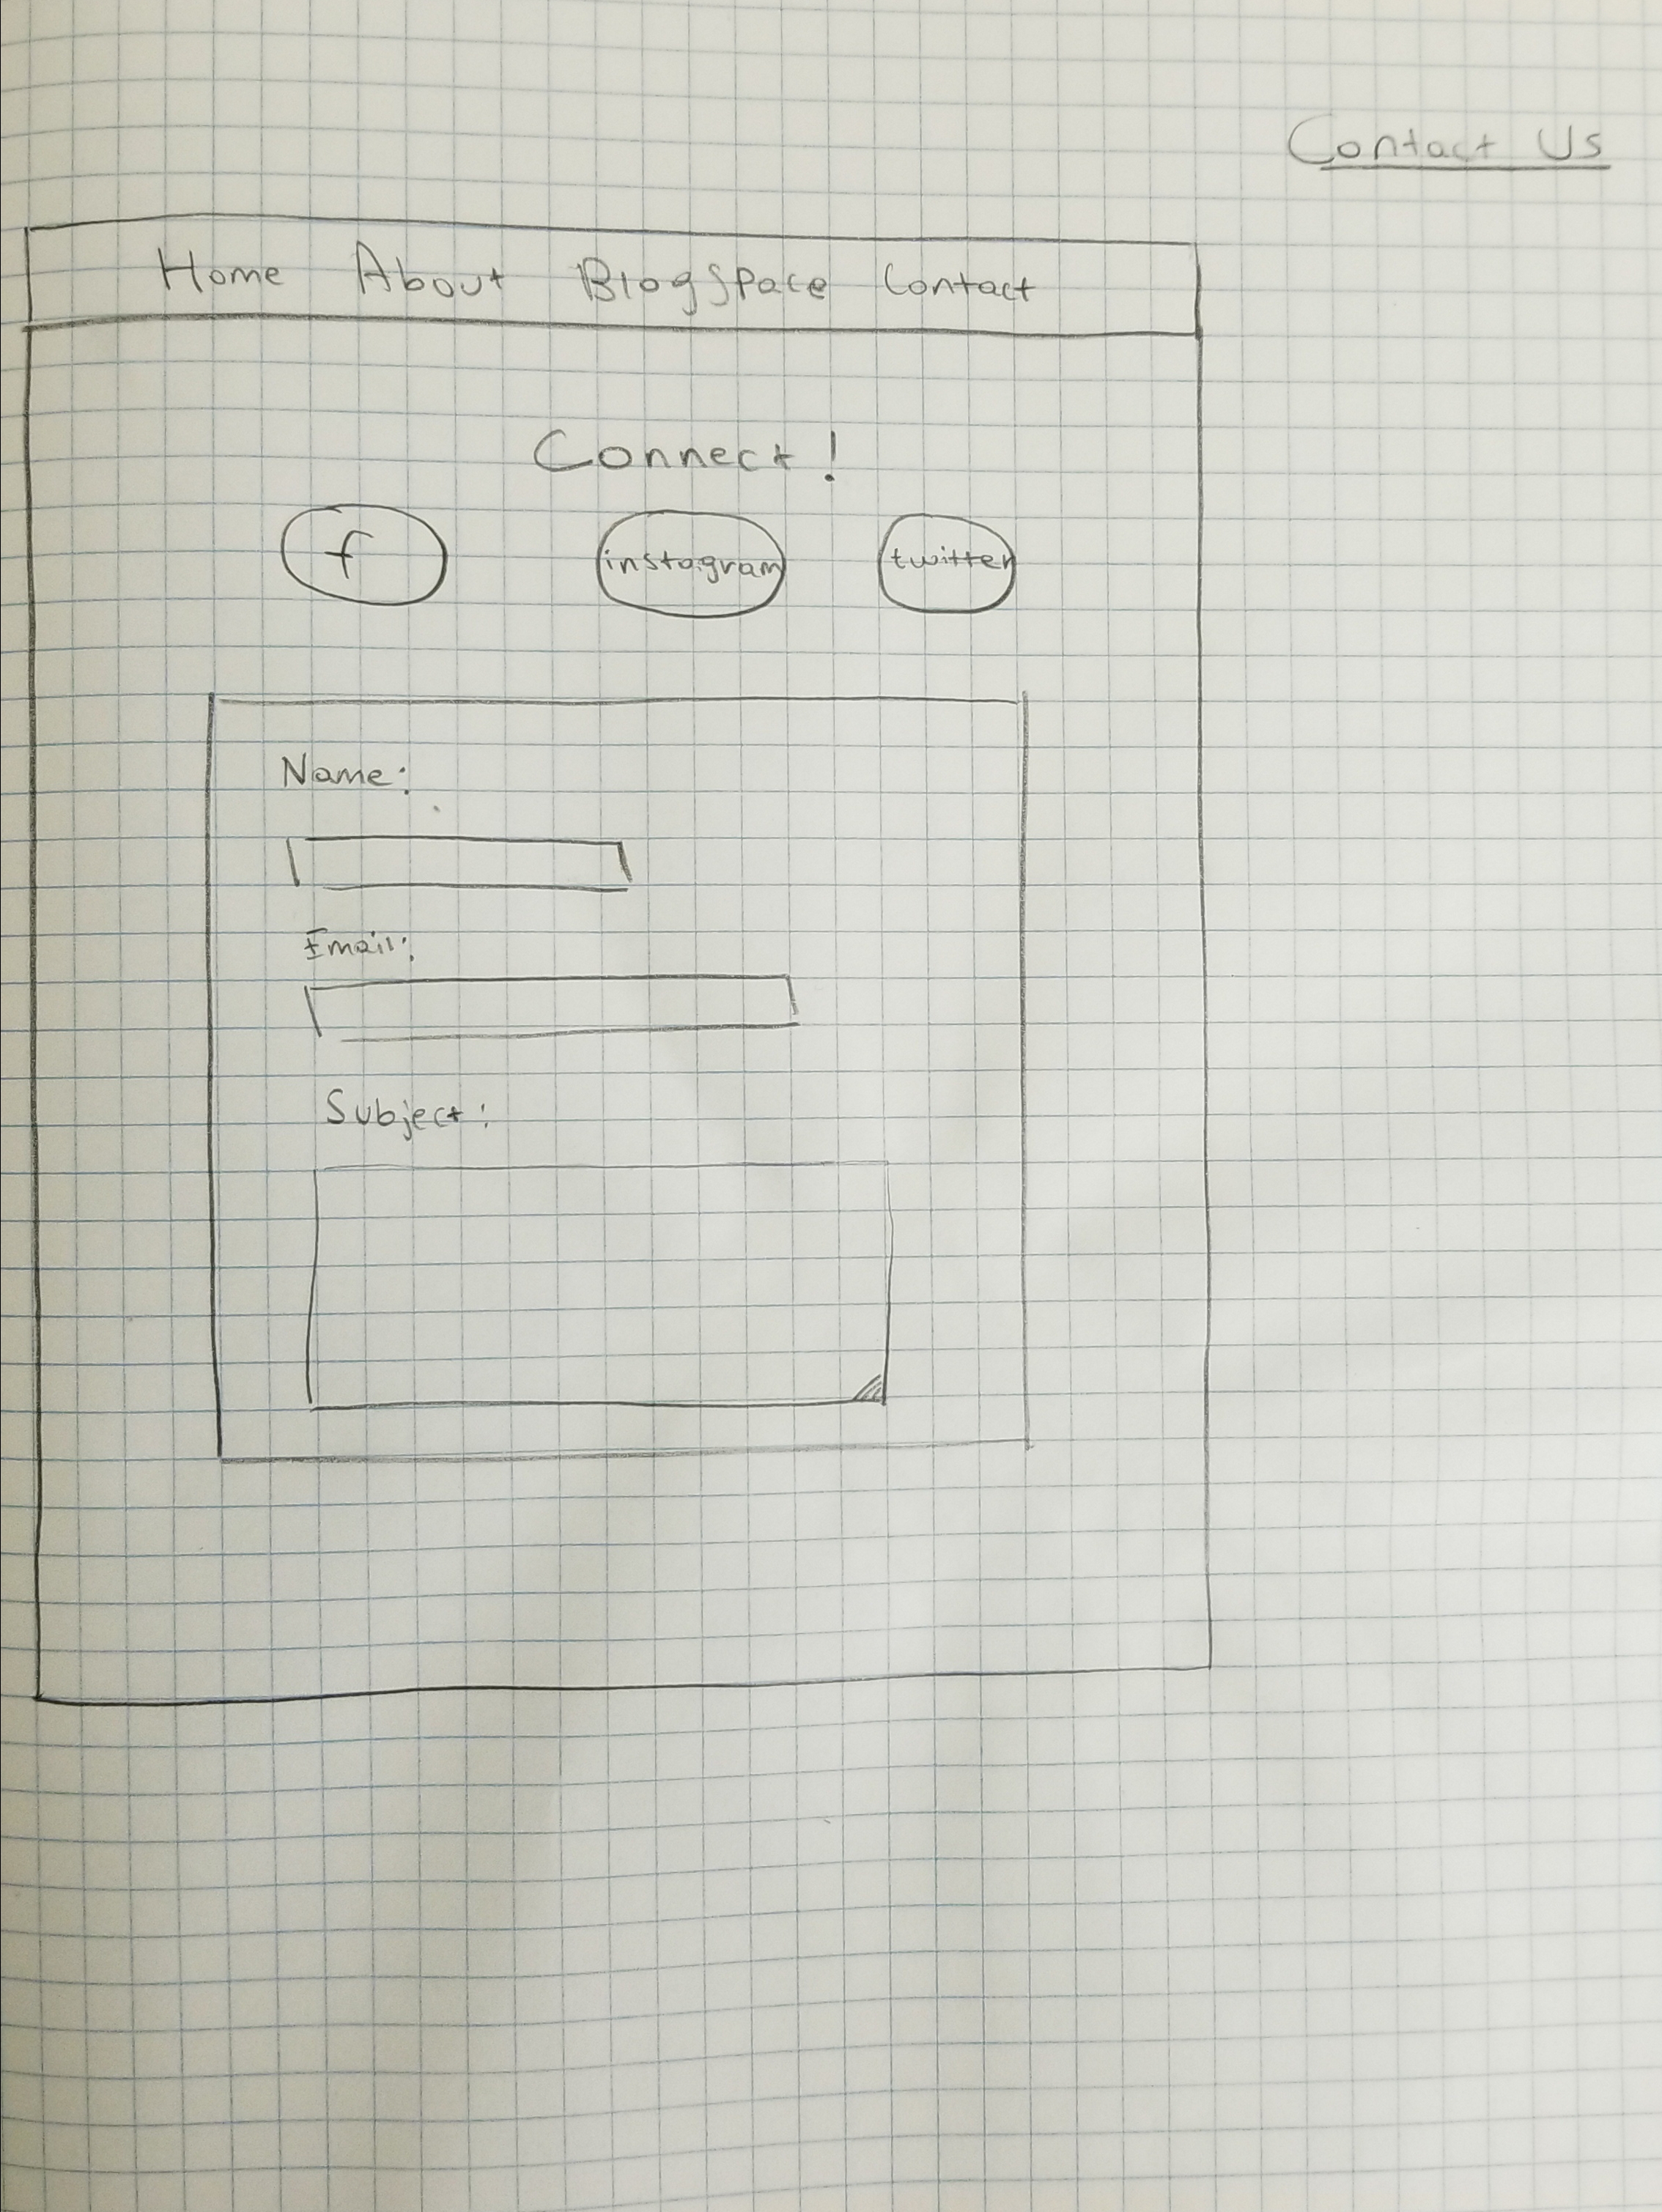 Contact Us
Home About BlogSpace Contact
Connect!
f instagram twitter
Name:
Email:
Subject: